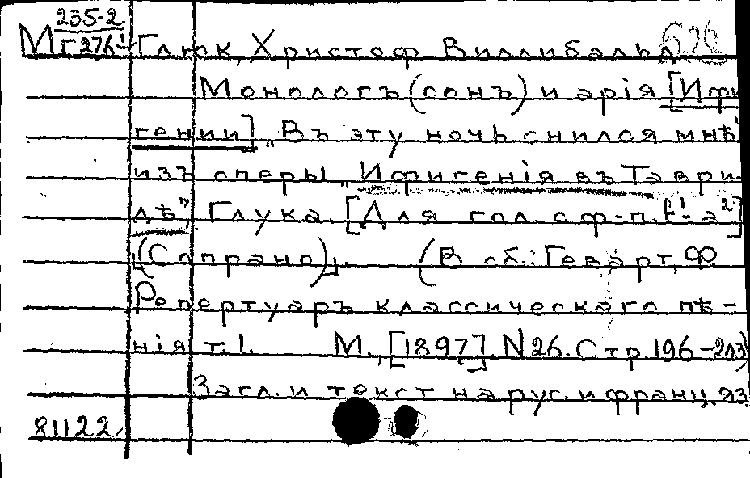 235-2
МГ 276¹ Глюк, Христоф Виллибальд
Монологъ (сонъ) и арія [Ифи
гении] „Въ эту ночь снился мнѣ"
изъ оперы „Ифигенія въ Таври-
дѣ" Глука. [Для гол. с ф-п. f¹-a²]
(Сопрано). (В сб.: Геварт, Ф
Репертуаръ классическаго пѣ-
нія т. I. М., [1897]. N 26. Стр. 196-203)
Загл. и текст на рус. и франц. яз.
81122